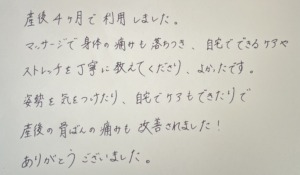 産後4ヶ月で利用しました。
マッサージで身体の痛みも落ちつき、自宅でできるケアや
ストレッチを丁寧に教えてくださり、よかったです。
姿勢を気をつけたり、自宅でケアもできたりで
産後の骨ばんの痛みも改善されました!
ありがとうございました。